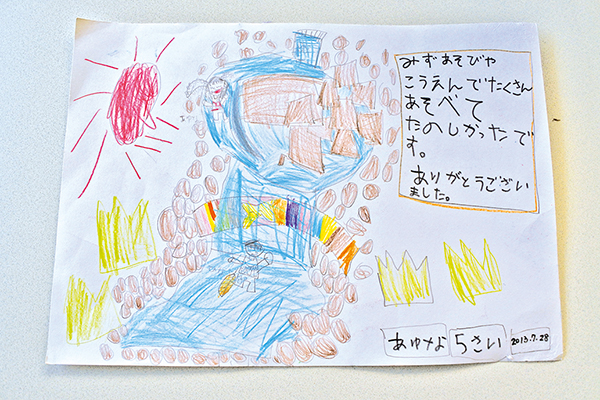 みずあそびや
こうえんでたくさん
あそべて
たのしかったで
す。
ありがとうござい
ました。
あゆな 5さい 2013.7.28